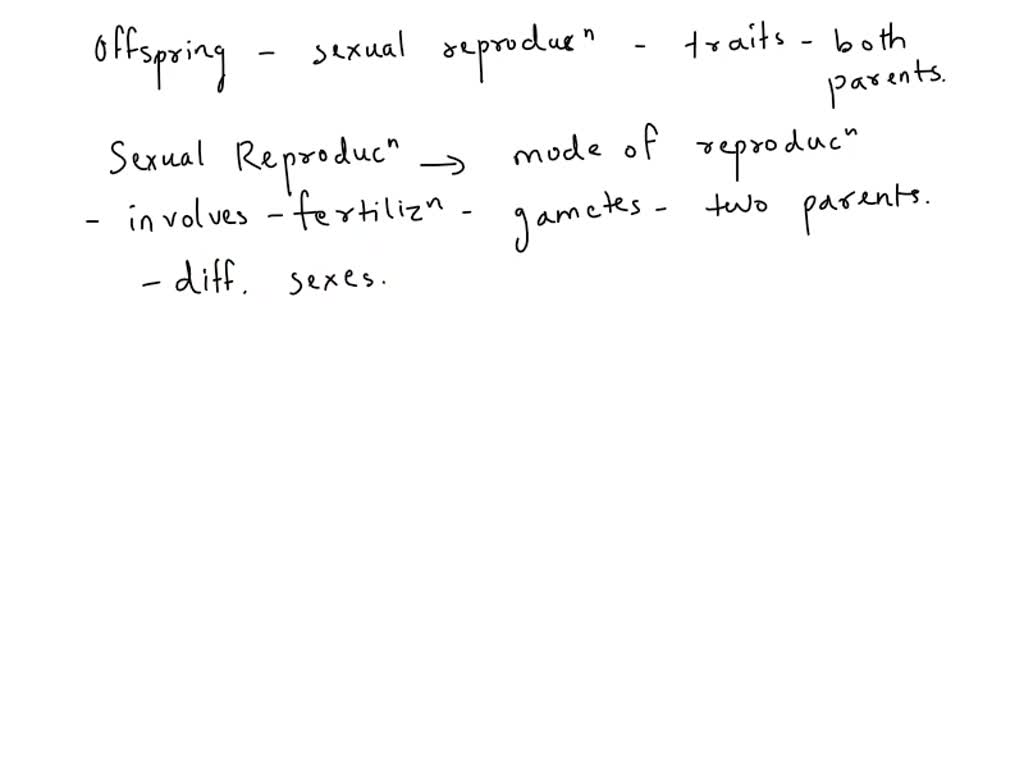 Offspring - sexual reproducⁿ - traits - both
parents.
Sexual Reproducⁿ → mode of reproducⁿ
- involves - fertilizⁿ - gametes - two parents.
- diff. sexes.